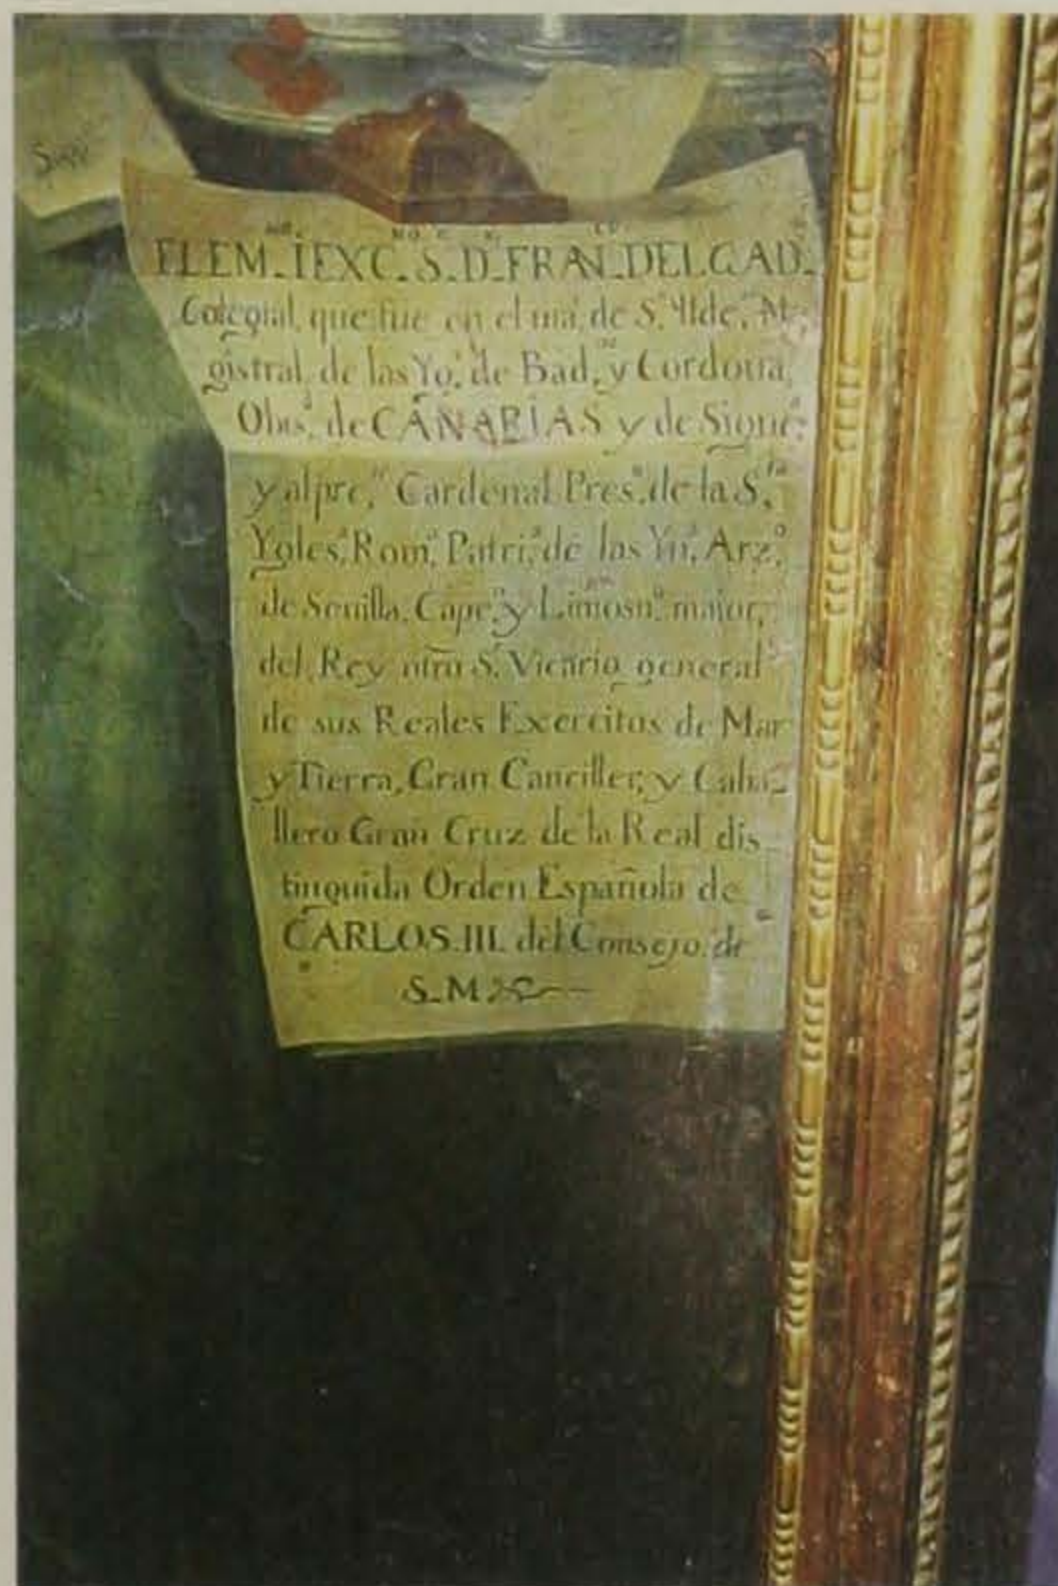 EL EM.^MO I EXC.^MO S.^R D. FRAN.^CO DELGAD.
Colegial, que fue en el ma.^r de S.^n Ilde.^o, Ma-
gistral, de las Yg.^s de Bad.^oz y Cordoua,
Obis.^o de CANARIAS y de Sigue.^a
y al pre.^te Cardenal Pres.^o de la S.^ta
Ygles.^a Rom.^a Patri.^a de las Yn.^s Arz.^o
de Seuilla, Cape.^n y Limosn.^o maior,
del Rey ntro S.^r Vicario general
de sus Reales Exercitos de Mar
y Tierra, Gran Canciller, y Caba-
llero Gran Cruz de la Real dis-
tinguida Orden Española de
CARLOS III. del Consejo de
S. M.